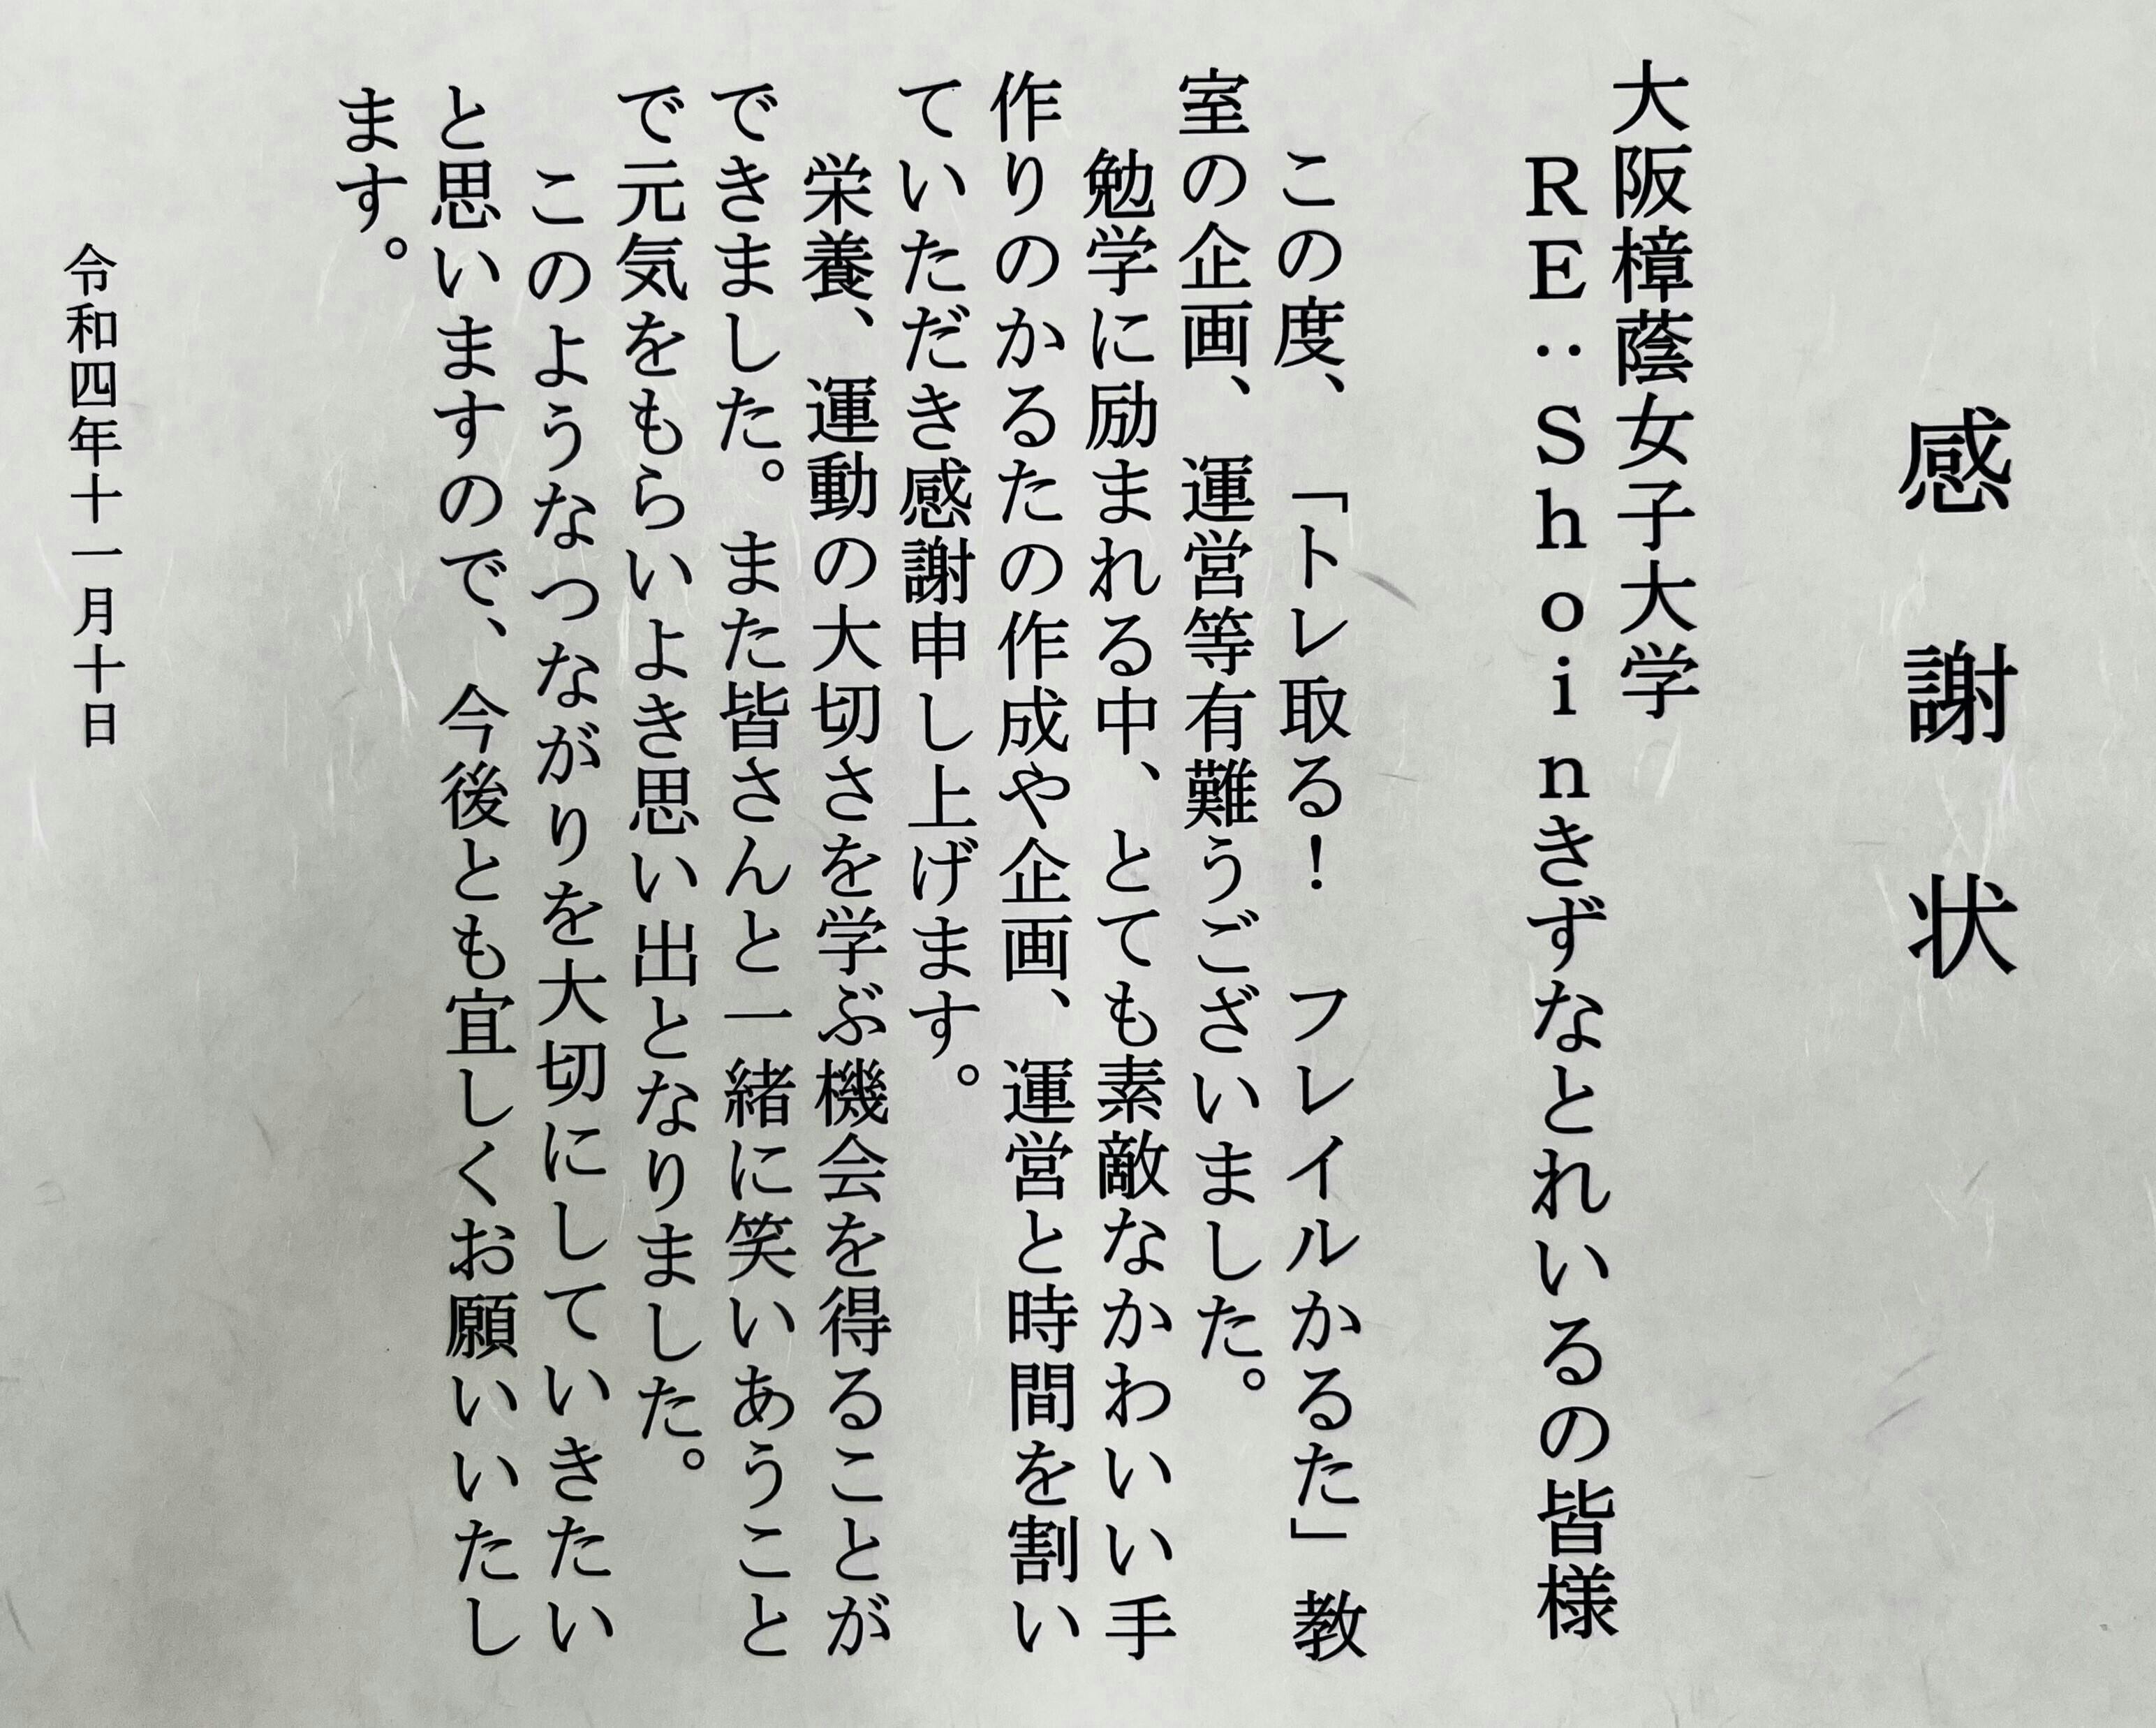 感謝状
大阪樟蔭女子大学
RE:Shoinきずなとれいるの皆様
この度、「トレ取る！　フレイルかるた」教
室の企画、運営等有難うございました。
勉学に励まれる中、とても素敵なかわいい手
作りのかるたの作成や企画、運営と時間を割い
ていただき感謝申し上げます。
栄養、運動の大切さを学ぶ機会を得ることが
できました。また皆さんと一緒に笑いあうこと
で元気をもらいよき思い出となりました。
このようなつながりを大切にしていきたい
と思いますので、今後とも宜しくお願いいたし
ます。
令和四年十一月十日